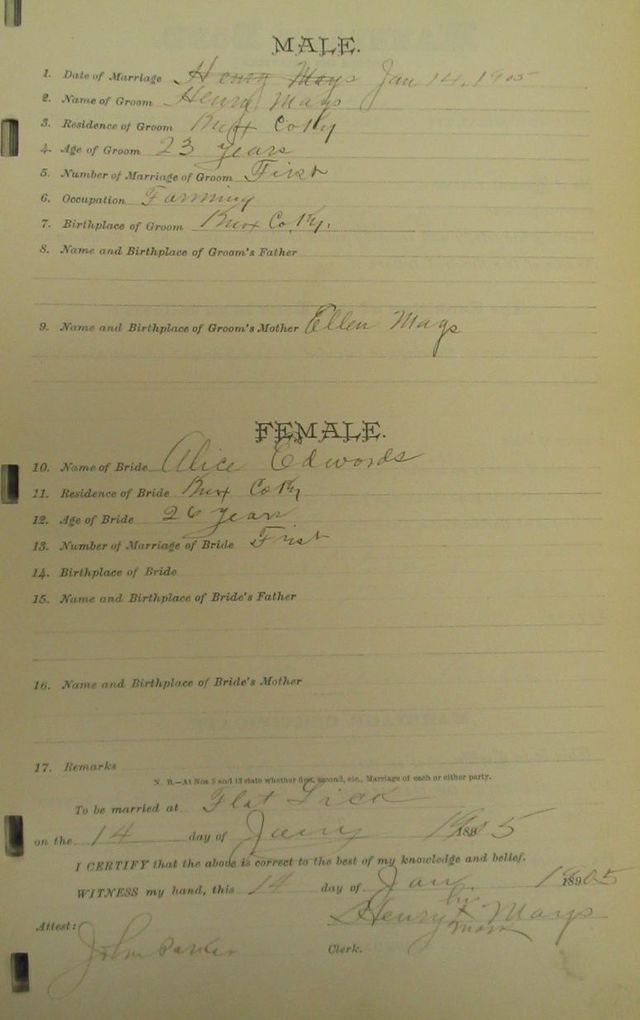 MALE.
1. Date of Marriage Henry Mays Jan 14, 1905
2. Name of Groom Henry Mays
3. Residence of Groom Knox Co Ky
4. Age of Groom 23 years
5. Number of Marriage of Groom First
6. Occupation Farming
7. Birthplace of Groom Knox Co, Ky.
8. Name and Birthplace of Groom's Father
9. Name and Birthplace of Groom's Mother Ellen Mays
FEMALE.
10. Name of Bride Alice Edwords
11. Residence of Bride Knox Co Ky
12. Age of Bride 26 years
13. Number of Marriage of Bride Frist
14. Birthplace of Bride
15. Name and Birthplace of Bride's Father
16. Name and Birthplace of Bride's Mother
17. Remarks
N. B.—At Nos 5 and 13 state whether first, second, etc., Marriage of each or either party.
To be married at Flat Lick
on the 14 day of Jany 1905
I CERTIFY that the above is correct to the best of my knowledge and belief.
WITNESS my hand, this 14 day of Jan. 1905
his
Henry X Mays
mark
Attest:
John Parker Clerk.